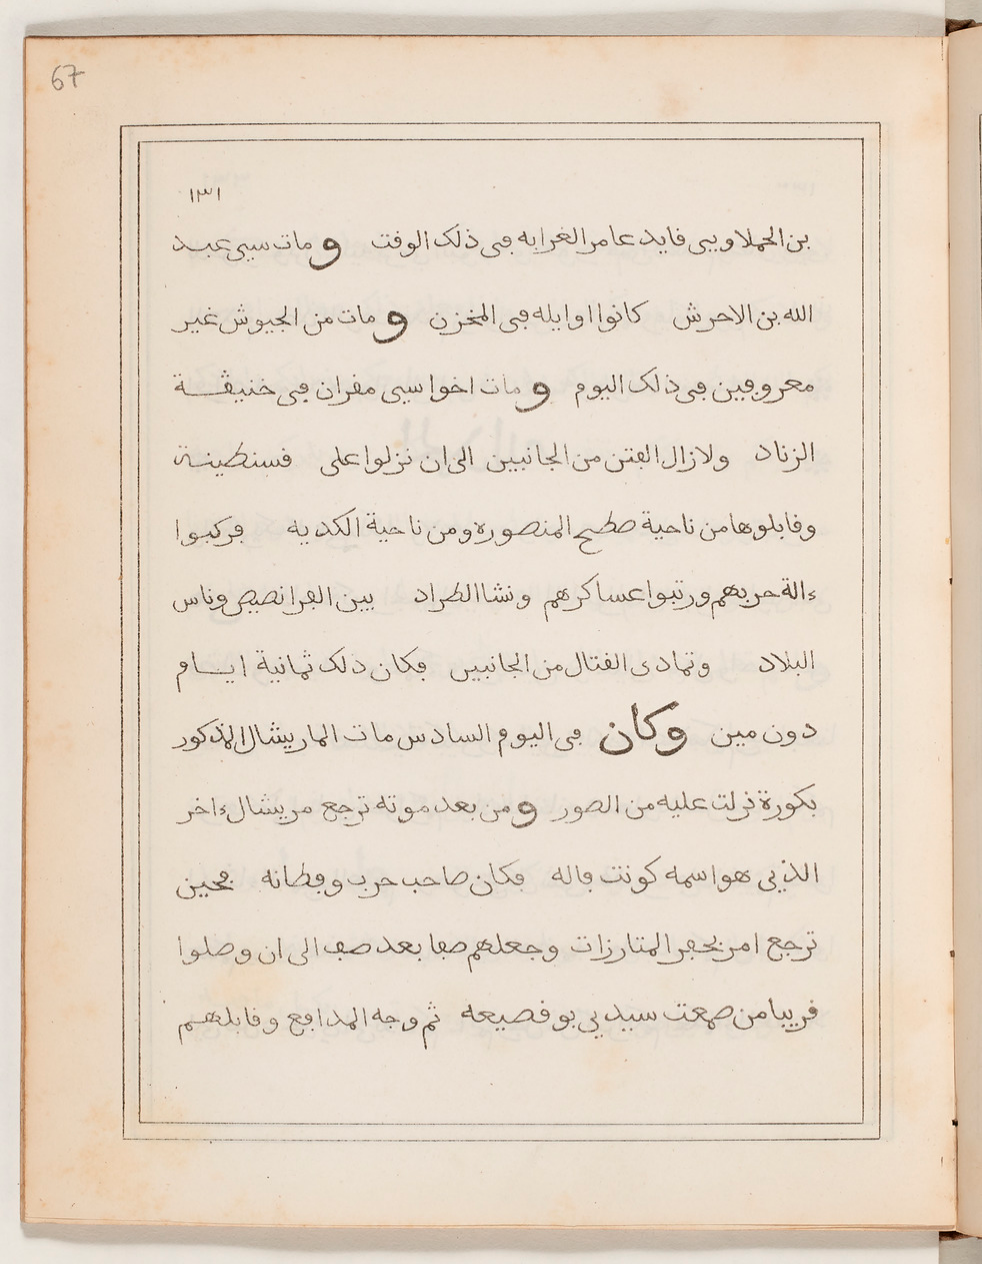 67
١٣١
بن الحملاويى قايد عامر الغرابه في ذلك الوقت و مات سي عبد
الله بن الاحرش كانوا اوايله في المخزن و مات من الجيوش غير
معروفين في ذلك اليوم و مات اخوا سي مقران في خنيڨة
الزناد ولازال الفتن من الجانبين الى ان نزلوا على قسنطينة
وقابلوها من ناحية صطيح المنصوره ومن ناحية الكديه فركبوا
ءالة حربهم ورتبوا عساكرهم ونشا الطراد بين الفرانصيص وناس
البلاد وتمادى القتال من الجانبين فكان ذلك ثمانية ايام
دون مين وكان في اليوم السادس مات الماريشال المذكور
بكورة نزلت عليه من الصور و من بعد موته ترجع مريشال ءاخر
الذي هو اسمه كونت فاله فكان صاحب حرب وفطانه فحين
ترجع امر بحفر المتارزات وجعلهم صفا بعد صف الى ان وصلوا
قريبا من صمعت سيدي بو قصيعه ثم وجه المدافع وقابلهم